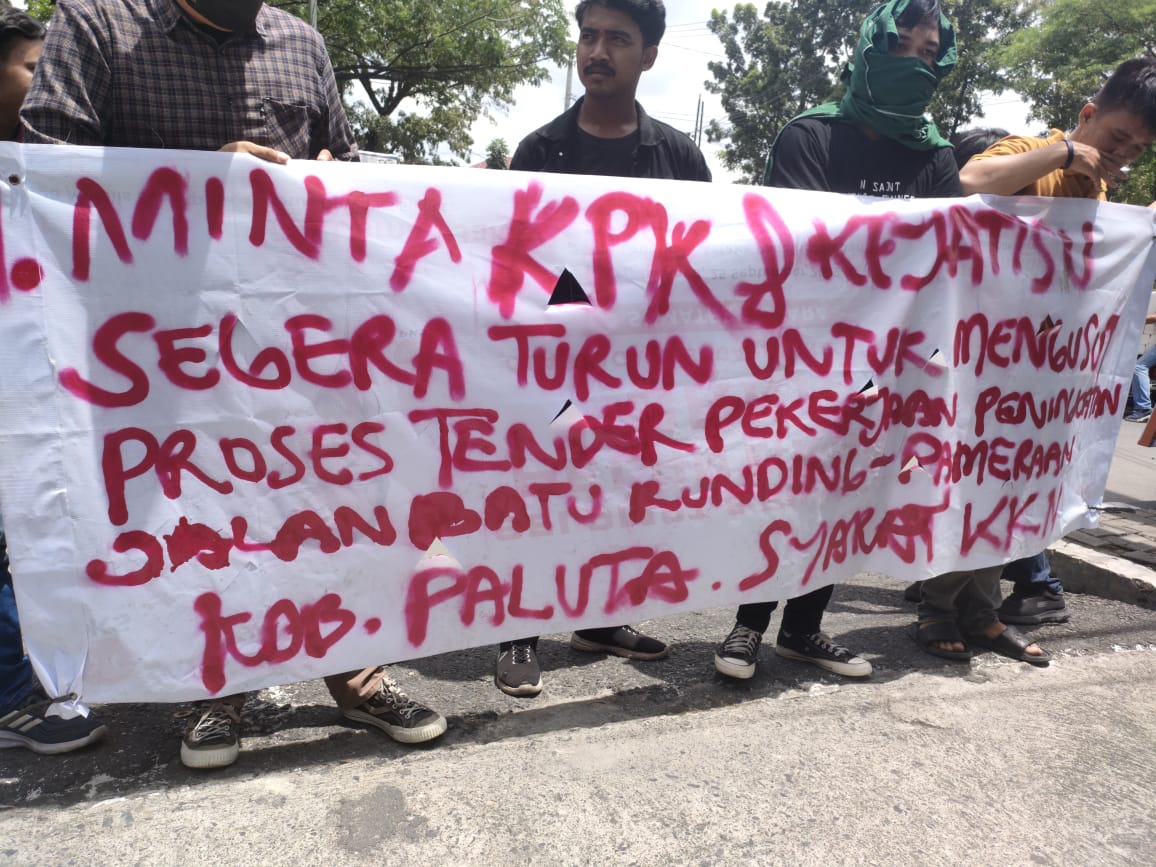 1. MINTA KPK & KEJATISU
SEGERA TURUN UNTUK MENGUSUT
PROSES TENDER PEKERJAAN PENINGKATAN
JALAN BATU RUNDING-PAMERAAN
KAB. PALUTA. SYARAT KKN